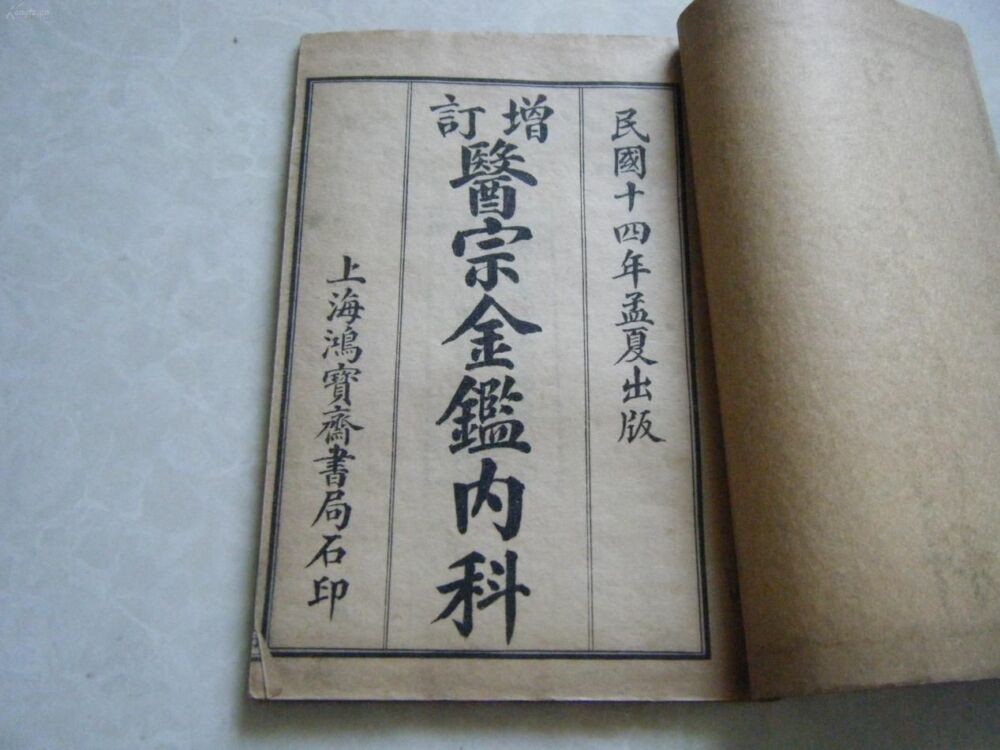 民國十四年孟夏出版
增訂
醫宗金鑑內科
上海鴻寶齋書局石印